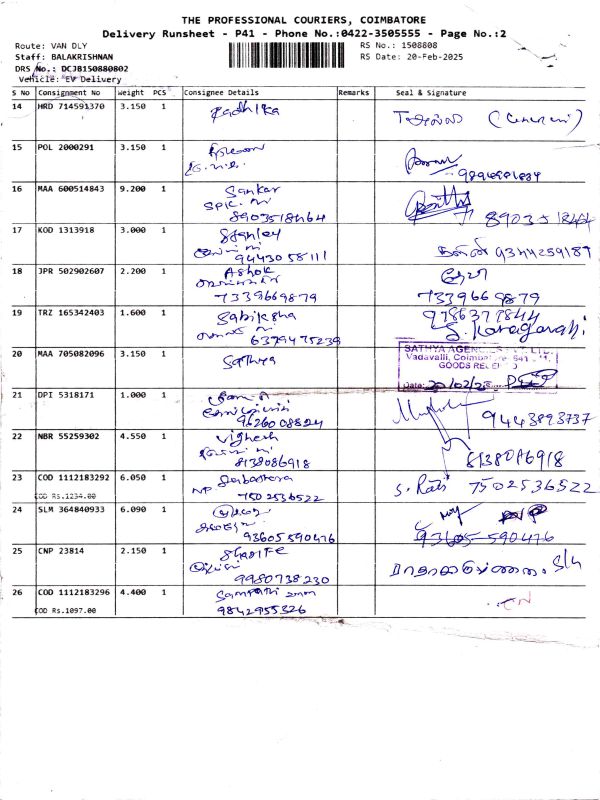 THE PROFESSIONAL COURIERS, COIMBATORE
Delivery Runsheet - P41 - Phone No.:0422-3505555 - Page No.:2
Route: VAN DLY
Staff: BALAKRISHNAN
DRS No.: DCJB150880802
Vehicle: EV Delivery
RS No.: 1508808
RS Date: 20-Feb-2025
S No Consignment No Weight PCS Consignee Details Remarks Seal & Signature
14 HRD 714591370 3.150 1 Radhika
15 POL 2000291 3.150 1
16 MAA 600514843 9.200 1 Sankar
8903518464
17 KOD 1313918 3.000 1 Stanley
9443058111 9344259189
18 JPR 502902607 2.200 1 Ashok
7339669879 7339669879
19 TRZ 165342403 1.600 1 Sabiksha 9786377844
6379475239
20 MAA 705082096 3.150 1 Sathya
SATHYA AGENCIES PVT. LTD.
Vadavalli, Coimbatore - 641 041.
GOODS RECEIVED
Date: 20/02/25
21 DPI 5318171 1.000 1
9626008824 9443893737
22 NBR 55259302 4.550 1 Vighesh
8138086918 8138086918
23 COD 1112183292 6.050 1
COD Rs.1234.00 NP 7502536522 S. Rati 7502536522
24 SLM 364840933 6.090 1
93605590476 93605 590476
25 CNP 23814 2.150 1
9980738230
26 COD 1112183296 4.400 1 Sampath
COD Rs.1097.00 9842955326